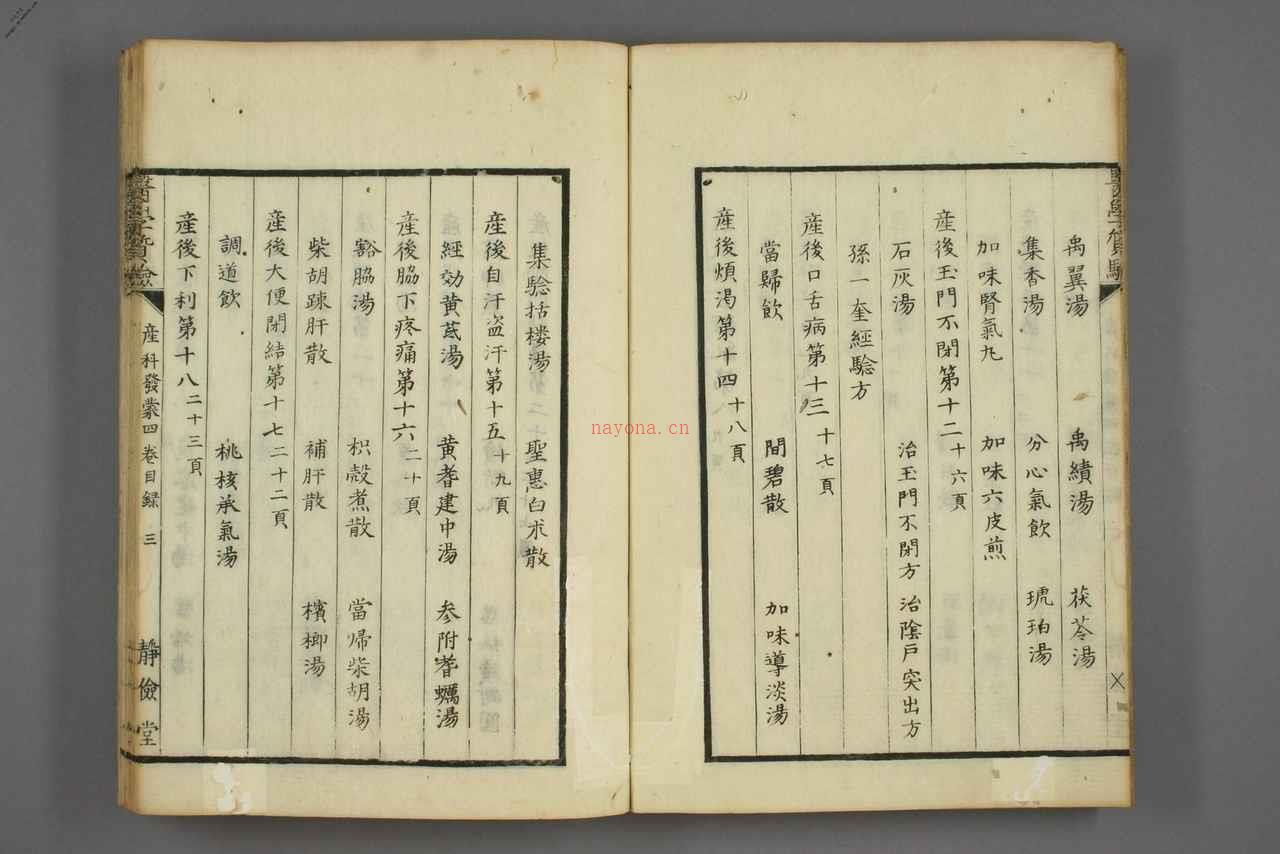 禹翼湯 禹績湯 茯苓湯
集香湯 分心氣飲 琥珀湯
加味腎氣丸 加味六皮煎
産後玉門不閉第十二 十六頁
石灰湯 治玉門不閉方 治陰戸突出方
孫一奎經驗方
産後口舌病第十三 十七頁
當歸飲 間碧散 加味導淡湯
産後煩渇第十四 十八頁
集驗括楼湯 聖惠白朮散
産後自汗盗汗第十五 十九頁
經効黄芪湯 黄耆建中湯 参附耆蠣湯
産後脇下疼痛第十六 二十頁
豁脇湯 枳殼煮散 當帰柴胡湯
柴胡疎肝散 補肝散 檳榔湯
産後大便閉結第十七 二十二頁
調道飲 桃核承氣湯
産後下利第十八 二十三頁
産科發蒙四 卷目録 三 靜儉堂
nayona.cn